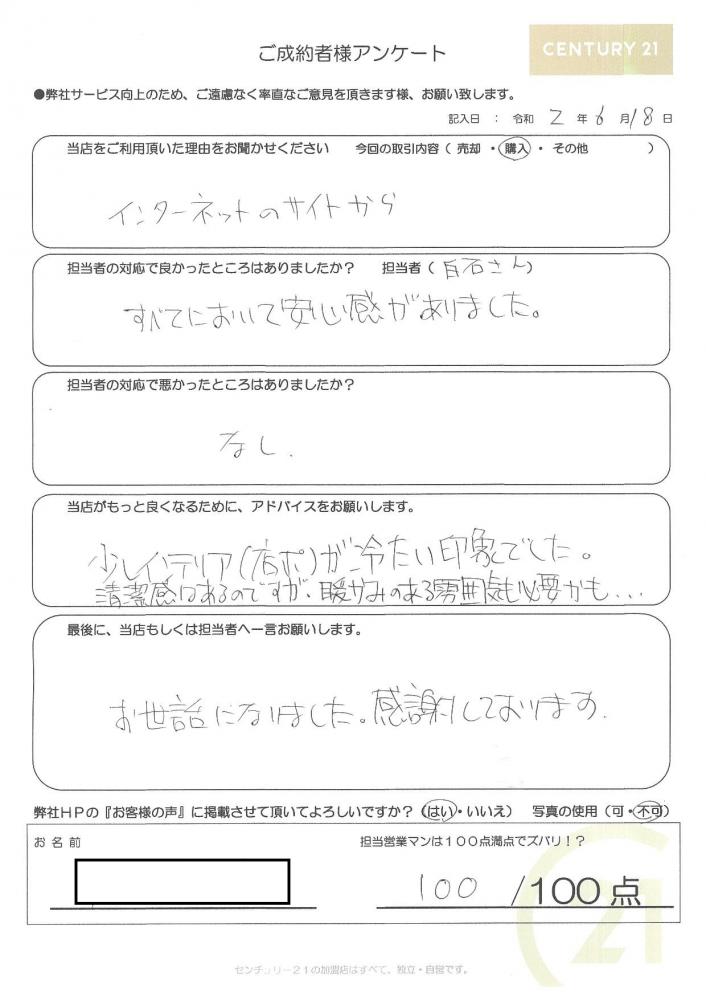 ご成約者様アンケート
CENTURY 21
●弊社サービス向上のため、ご遠慮なく率直なご意見を頂きます様、お願い致します。
記入日 : 令和 2 年 6 月 18 日
当店をご利用頂いた理由をお聞かせください 今回の取引内容 ( 売却 ・ 購入 ・ その他 )
インターネットのサイトから
担当者の対応で良かったところはありましたか? 担当者 ( 白石さん )
すべてにおいて安心感がありました。
担当者の対応で悪かったところはありましたか?
なし.
当店がもっと良くなるために、アドバイスをお願いします。
少しインテリア(店ポ)が冷たい印象でした。
清潔感はあるのですが、暖かみのある雰囲気も必要かも...
最後に、当店もしくは担当者へ一言お願いします。
お世話になりました。感謝しております.
弊社HPの『お客様の声』に掲載させて頂いてよろしいですか? (はい・いいえ) 写真の使用 (可・不可)
お名前 担当営業マンは100点満点でズバリ!?
100 /100点
21
センチュリー21の加盟店はすべて、独立・自営です。